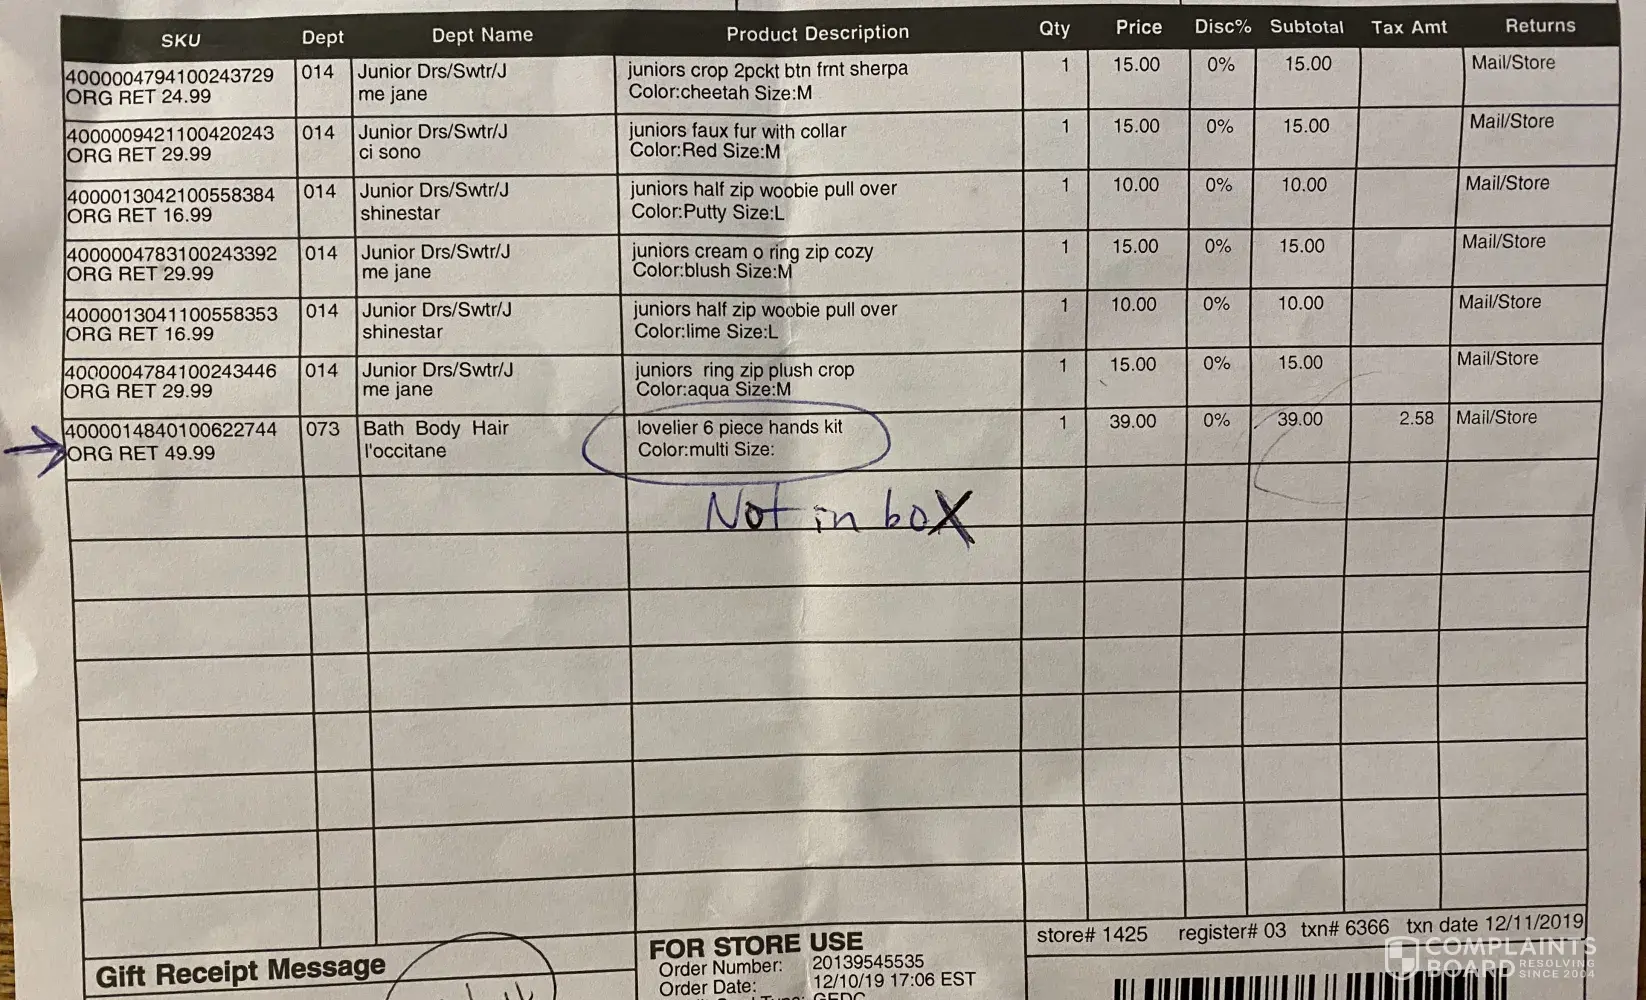 SKU Dept Dept Name Product Description Qty Price Disc% Subtotal Tax Amt Returns
4000004794100243729 014 Junior Drs/Swtr/J juniors crop 2pckt btn frnt sherpa 1 15.00 0% 15.00 Mail/Store
ORG RET 24.99 me jane Color:cheetah Size:M
4000009421100420243 014 Junior Drs/Swtr/J juniors faux fur with collar 1 15.00 0% 15.00 Mail/Store
ORG RET 29.99 ci sono Color:Red Size:M
4000013042100558384 014 Junior Drs/Swtr/J juniors half zip woobie pull over 1 10.00 0% 10.00 Mail/Store
ORG RET 16.99 shinestar Color:Putty Size:L
4000004783100243392 014 Junior Drs/Swtr/J juniors cream o ring zip cozy 1 15.00 0% 15.00 Mail/Store
ORG RET 29.99 me jane Color:blush Size:M
4000013041100558353 014 Junior Drs/Swtr/J juniors half zip woobie pull over 1 10.00 0% 10.00 Mail/Store
ORG RET 16.99 shinestar Color:lime Size:L
4000004784100243446 014 Junior Drs/Swtr/J juniors ring zip plush crop 1 15.00 0% 15.00 Mail/Store
ORG RET 29.99 me jane Color:aqua Size:M
4000014840100622744 073 Bath Body Hair lovelier 6 piece hands kit 1 39.00 0% 39.00 2.58 Mail/Store
ORG RET 49.99 l'occitane Color:multi Size:
Not in box
store# 1425 register# 03 txn# 6366 txn date 12/11/2019
Gift Receipt Message
FOR STORE USE
Order Number: 20139545535
Order Date: 12/10/19 17:06 EST
COMPLAINTS
BOARD RESOLVING
SINCE 2004